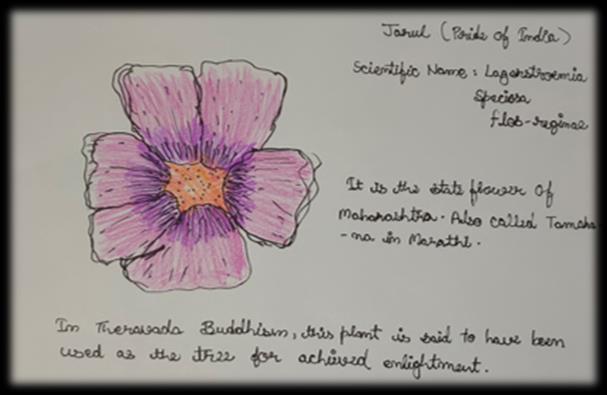 Jarul (Pride of India)
Scientific Name : Lagerstroemia
Speciosa
flos-reginae
It is the state flower of
Maharashtra. Also called Tamaha
-na in Marathi.
In Theravada Buddhism, this plant is said to have been
used as the tree for achieved enlightment.